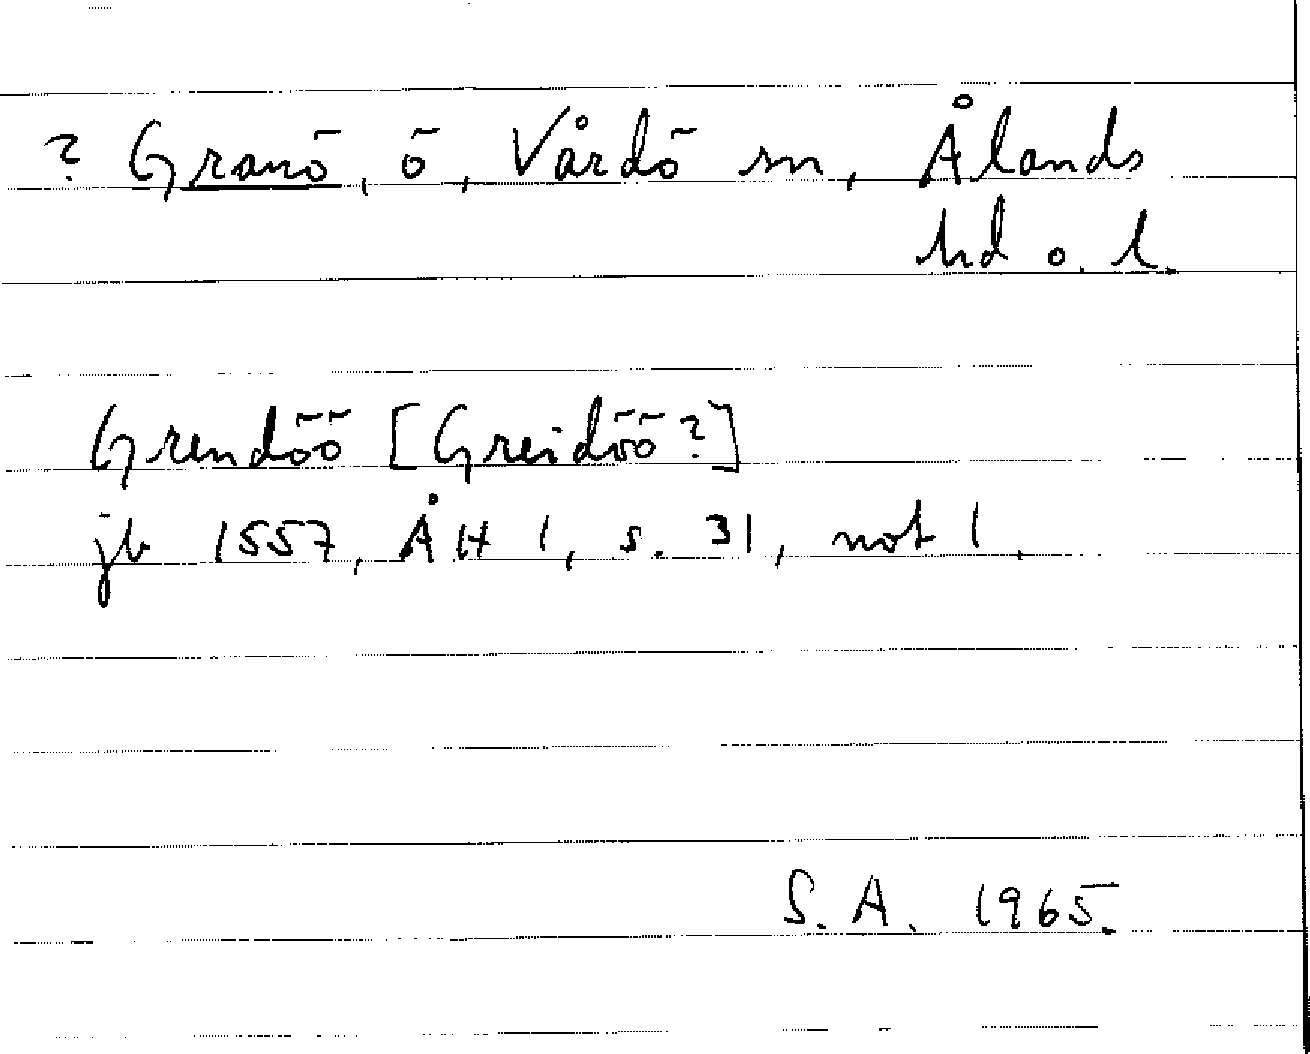 ? Granö, ö, Vårdö sn, Ålands
hd o. l.
Grendöö [Greidöö?]
jb 1557, ÅH 1, s. 31, not 1.
S. A. 1965.